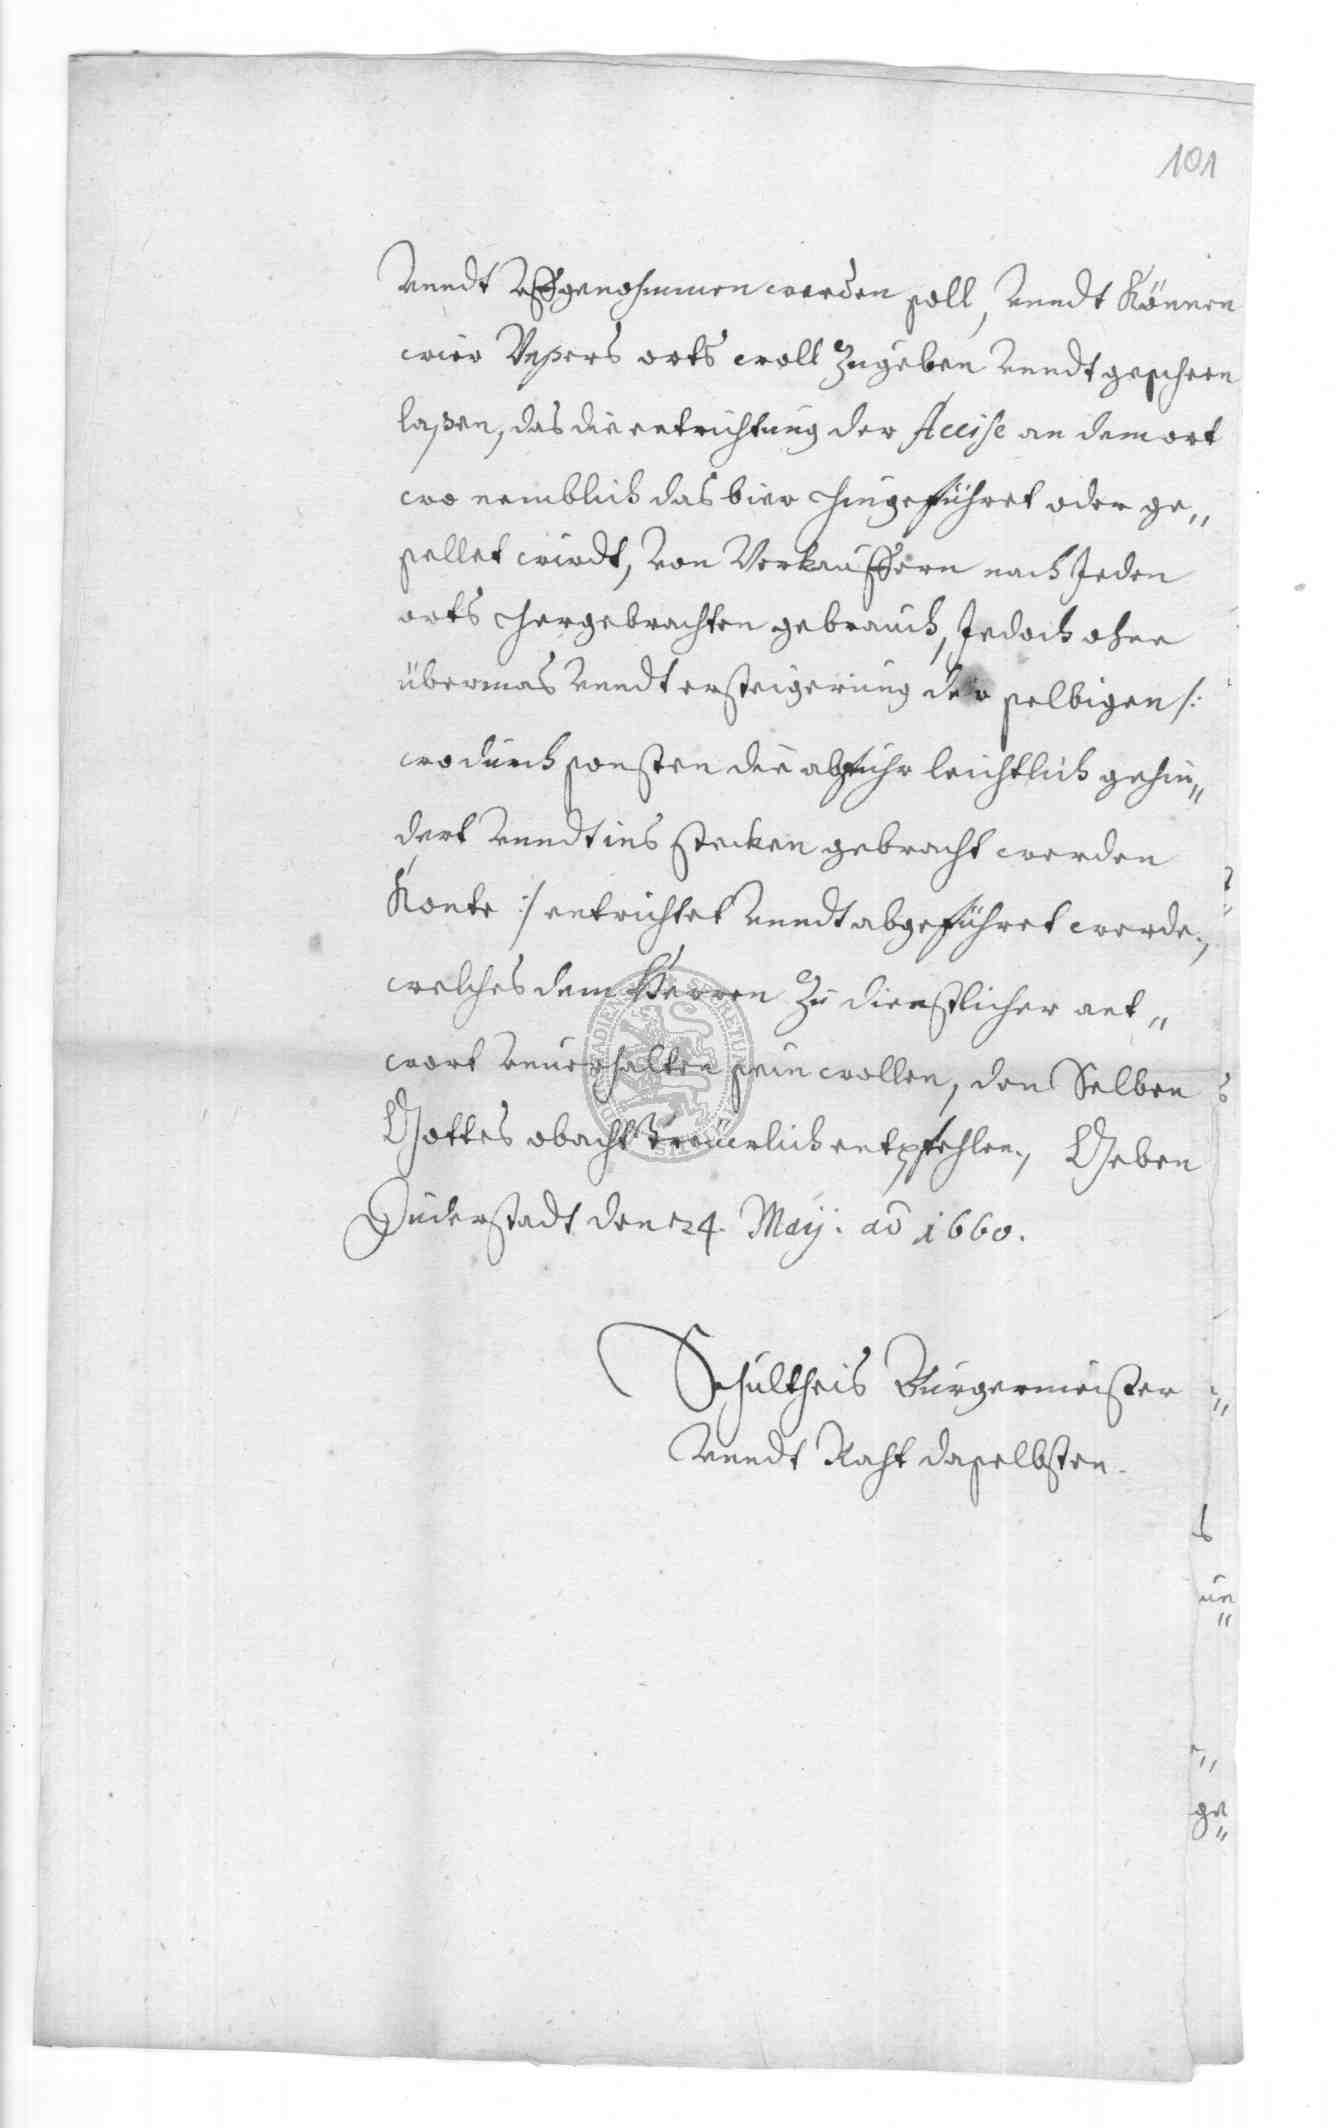 101
vnndt vffgenohmmen werden soll, vnndt Können
wier Vnsers orts woll Zugeben vnndt gescheen
laßen, das die entrichtung der Accise an dem ort
wo nemblich das bier hingeführet oder ge„
sellet wirdt, von Verkauffern nach Jeden
orts hergebrachten gebrauch, Jedoch ohne
übermas vnndt ersteigerung der selbigen /:
wodurch sonsten die abfuhr leichtlich gehin„
dert vnndt ins stecken gebracht werden
Konte :/ entrichtet vnndt abgeführet werde,
welches dem Herren Zu dienstlicher ant„
wort vnuerhalten sein wollen, den Selben
Gottes obacht treuerlich entpfehlen, Geben
Duderstadt den 24. Maij: aō 1660.
Schultheis Burgermeister
vnndt Raht daselbsten.